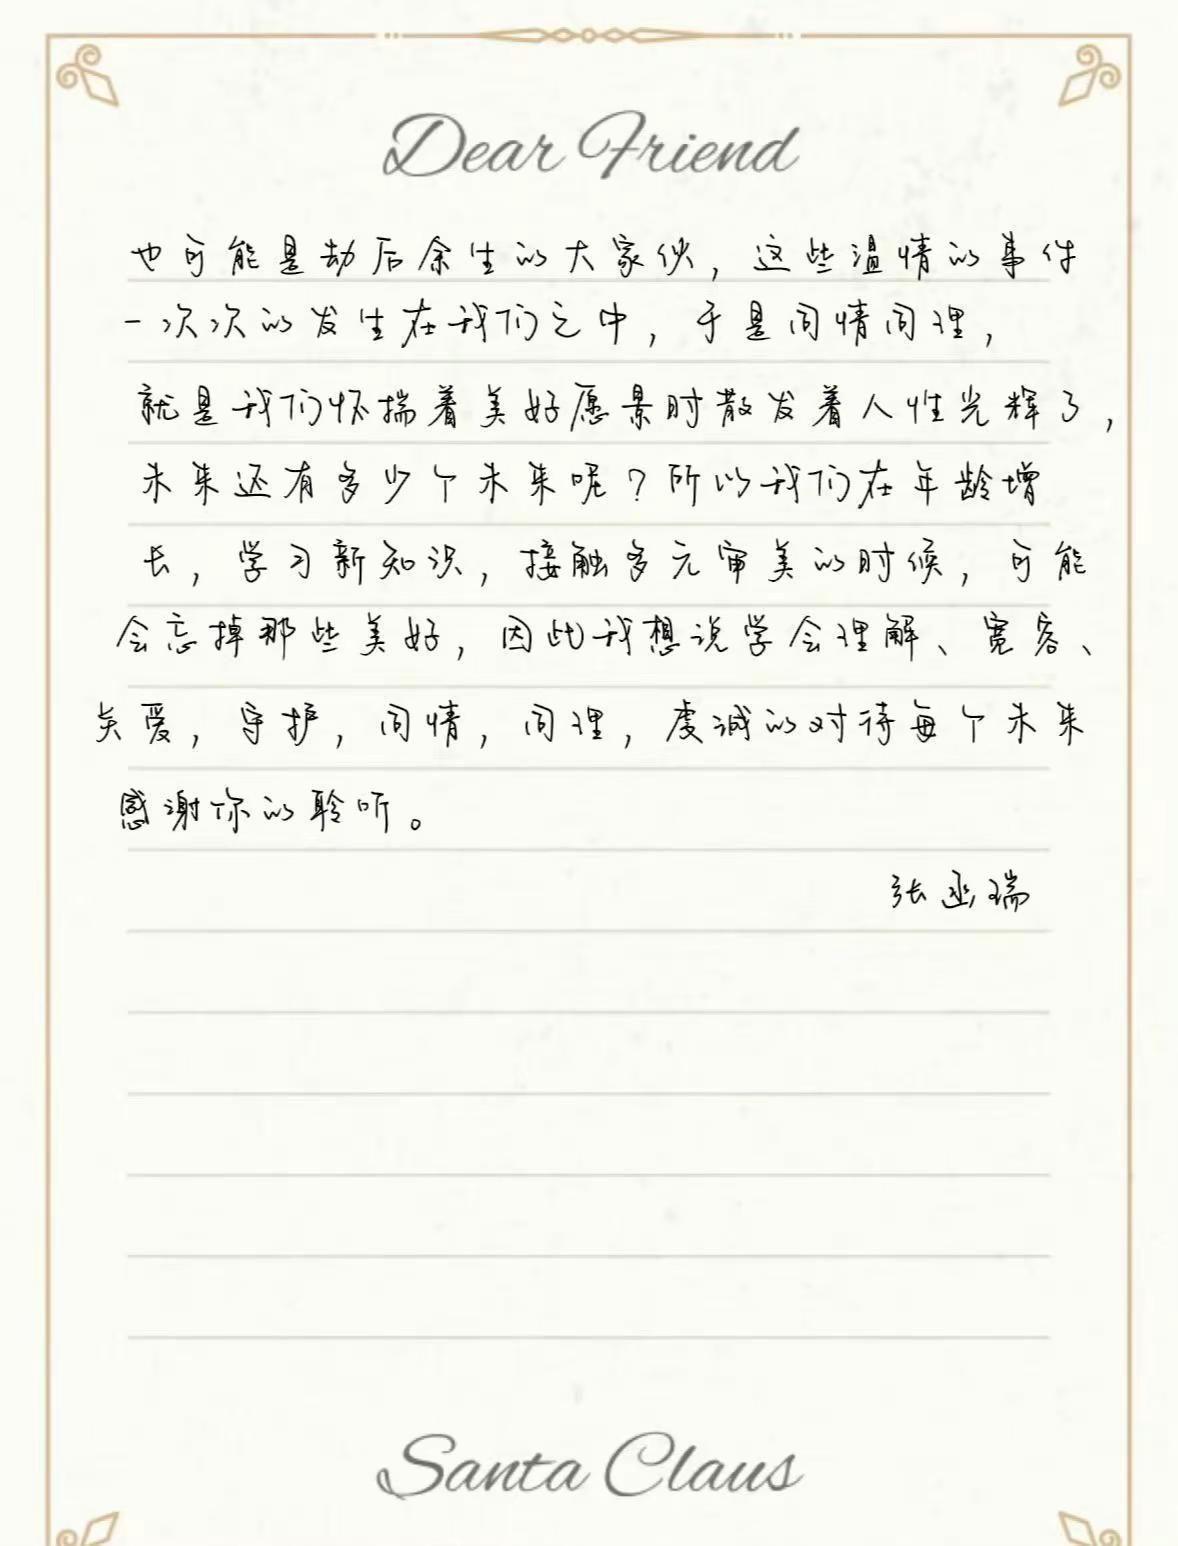 Dear Friend
也可能是劫后余生的大家伙，这些温情的事件
一次次的发生在我们之中，于是同情同理，
就是我们怀揣着美好愿景时散发着人性光辉了，
未来还有多少个未来呢？所以我们在年龄增
长，学习新知识，接触多元审美的时候，可能
会忘掉那些美好，因此我想说学会理解、宽容、
关爱，守护，同情，同理，虔诚的对待每个未来
感谢你的聆听。
张丞瑞
Santa Claus